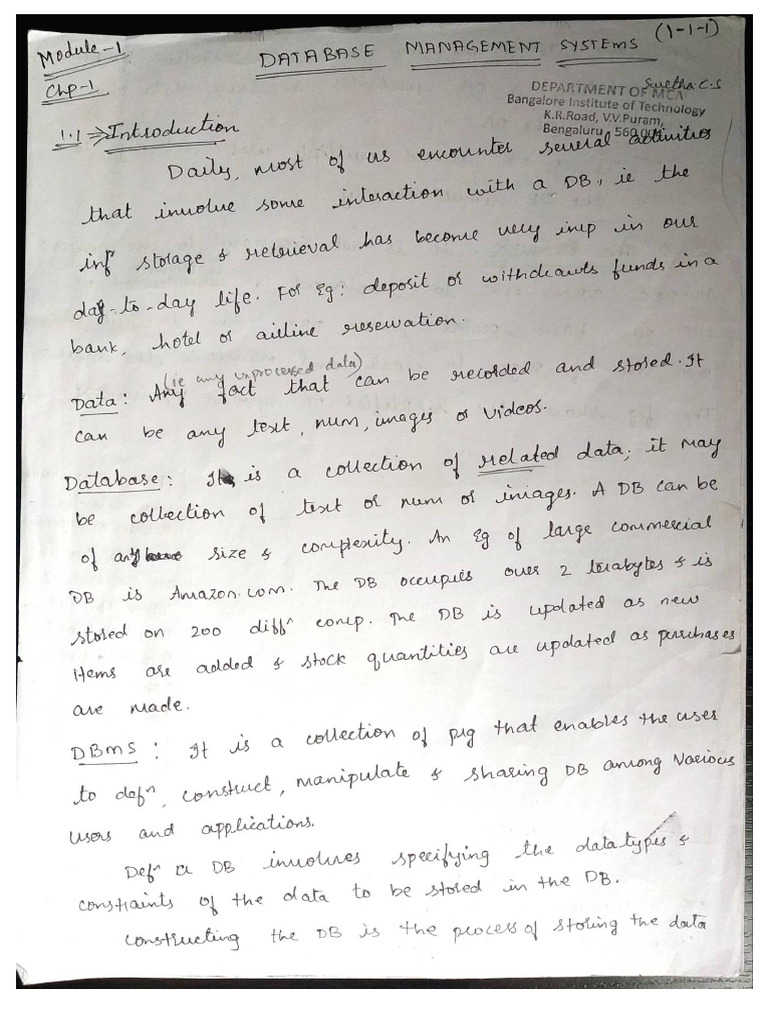 Module-1
DATABASE MANAGEMENT SYSTEMS (1-1-1)
Chp-1
Suetha C.S
DEPARTMENT OF MCA
Bangalore Institute of Technology
K.R.Road, V.V.Puram,
Bengaluru 560 004
1.1 ⇒ Introduction
Daily, most of us encounter several activities
that involve some interaction with a DB, ie the
infⁿ storage & retrieval has become very imp in our
day-to-day life. For Eg: deposit or withdrawls funds in a
bank, hotel or airline reservation.
(ie any unprocessed data)
Data: Any fact that can be recorded and stored. It
can be any text, num, images or videos.
Database: It is a collection of related data, it may
be collection of text or num or images. A DB can be
of any size & complexity. An Eg of large commercial
DB is Amazon.com. The DB occupies over 2 terabytes & is
stored on 200 diffⁿ comp. The DB is updated as new
items are added & stock quantities are updated as purchases
are made.
DBMS: It is a collection of prg that enables the user
to defⁿ, construct, manipulate & sharing DB among various
users and applications.
Defⁿ a DB involves specifying the datatypes &
constraints of the data to be stored in the DB.
Constructing the DB is the process of storing the data